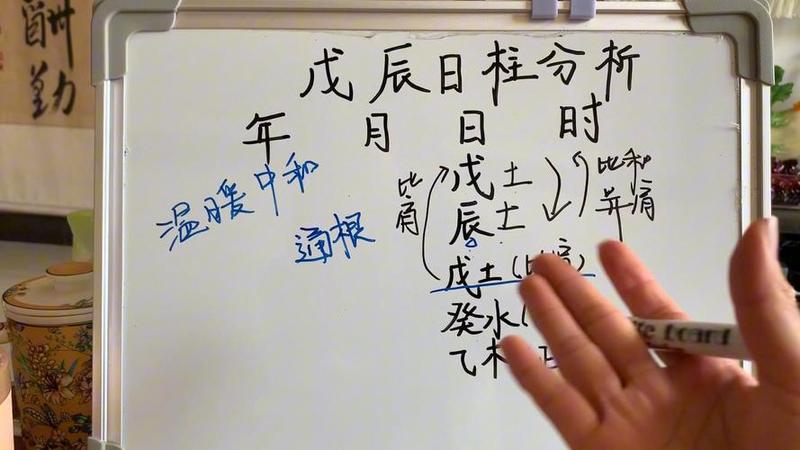 戊辰日柱分析
年 月 日 时
温暖中和
通根
比肩
戊土
辰土
戊土(比肩)
癸水(
乙木
比和
并肩
board
酬勤